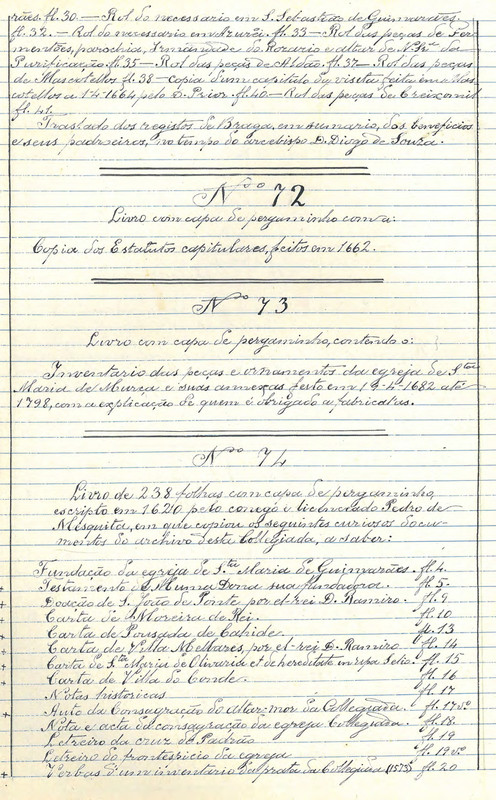 rães. fl. 30. — Rol do necessario em S. Sebastião de Guimarães.
fl. 32. — Rol do necessario em Azurei. fl. 33 — Rol das peças de Fer-
mentões, parochia, Irmandade do Rozario e altar de N. Srª da
Purificação. fl. 35 — Rol das peças de Aldão. fl. 37 — Rol das peças
de Mascotellos fl. 38 — Copia d'um capitulo da visita feita em Mas-
cotellos a 1-4-1664 pelo D. Prior. fl. 40 — Rol das peças de Creixomil
fl. 41.
Traslado dos registos de Braga, em summario, dos beneficios
e seus padroeiros, no tempo do arcebispo D. Diogo de Souza.
Nº 72
Livro com capa de pergaminho com a:
Copia dos Estatutos capitulares, feitos em 1662.
Nº 73
Livro com capa de pergaminho, contendo o:
Inventario das peças e ornamentos da egreja de Sta
Maria de Murça e suas annexas feito em -4-1682 até
1798, com a explicação de quem é obrigado a fabrical-as.
Nº 74
Livro de 238 folhas com capa de pergaminho,
escripto em 1620 pelo conego e licenciado Pedro de
Mesquita, em que copiou os seguintes curiosos docu-
mentos do archivo desta Collegiada, a saber:
Fundação da egreja de Sta Maria de Guimarães. fl. 4.
Testamento de Muma Dona sua fundadora. fl. 5.
Doação de S. João de Ponte por el-rei D. Ramiro. fl. 9
Carta de Moreira de Rei. fl. 10
Carta de Pousada de Cahide. fl. 13
Carta de Villa Mellares, por el-rei D. Ramiro. fl. 14
Carta de Sta Maria de Olivaria et de hereditate in ripa Selio. fl. 15
Carta de Villa do Conde. fl. 16
Notas historicas fl. 17
Auto da Consagração do altar-mor da Collegiada. fl. 17vº
Nota e acta da consagração da egreja Collegiada. fl. 18.
Letreiro da cruz do Padrão fl. 19
Letreiro do frontespicio da egreja fl. 19vº
Verbas d'um inventario da prata da Collegiada (1573) fl. 20